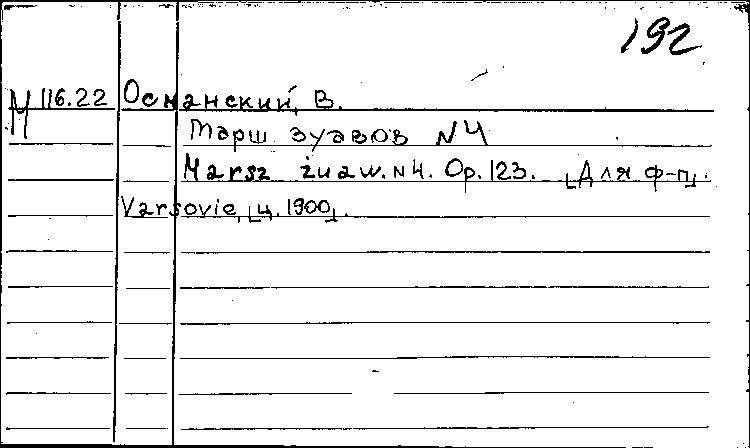 192
М 116.22 Османский, В.
Марш зуавов N4
Marsz żuaw. N4. Op. 123. [Для ф-п].
Varsovie, [ц. 1900].